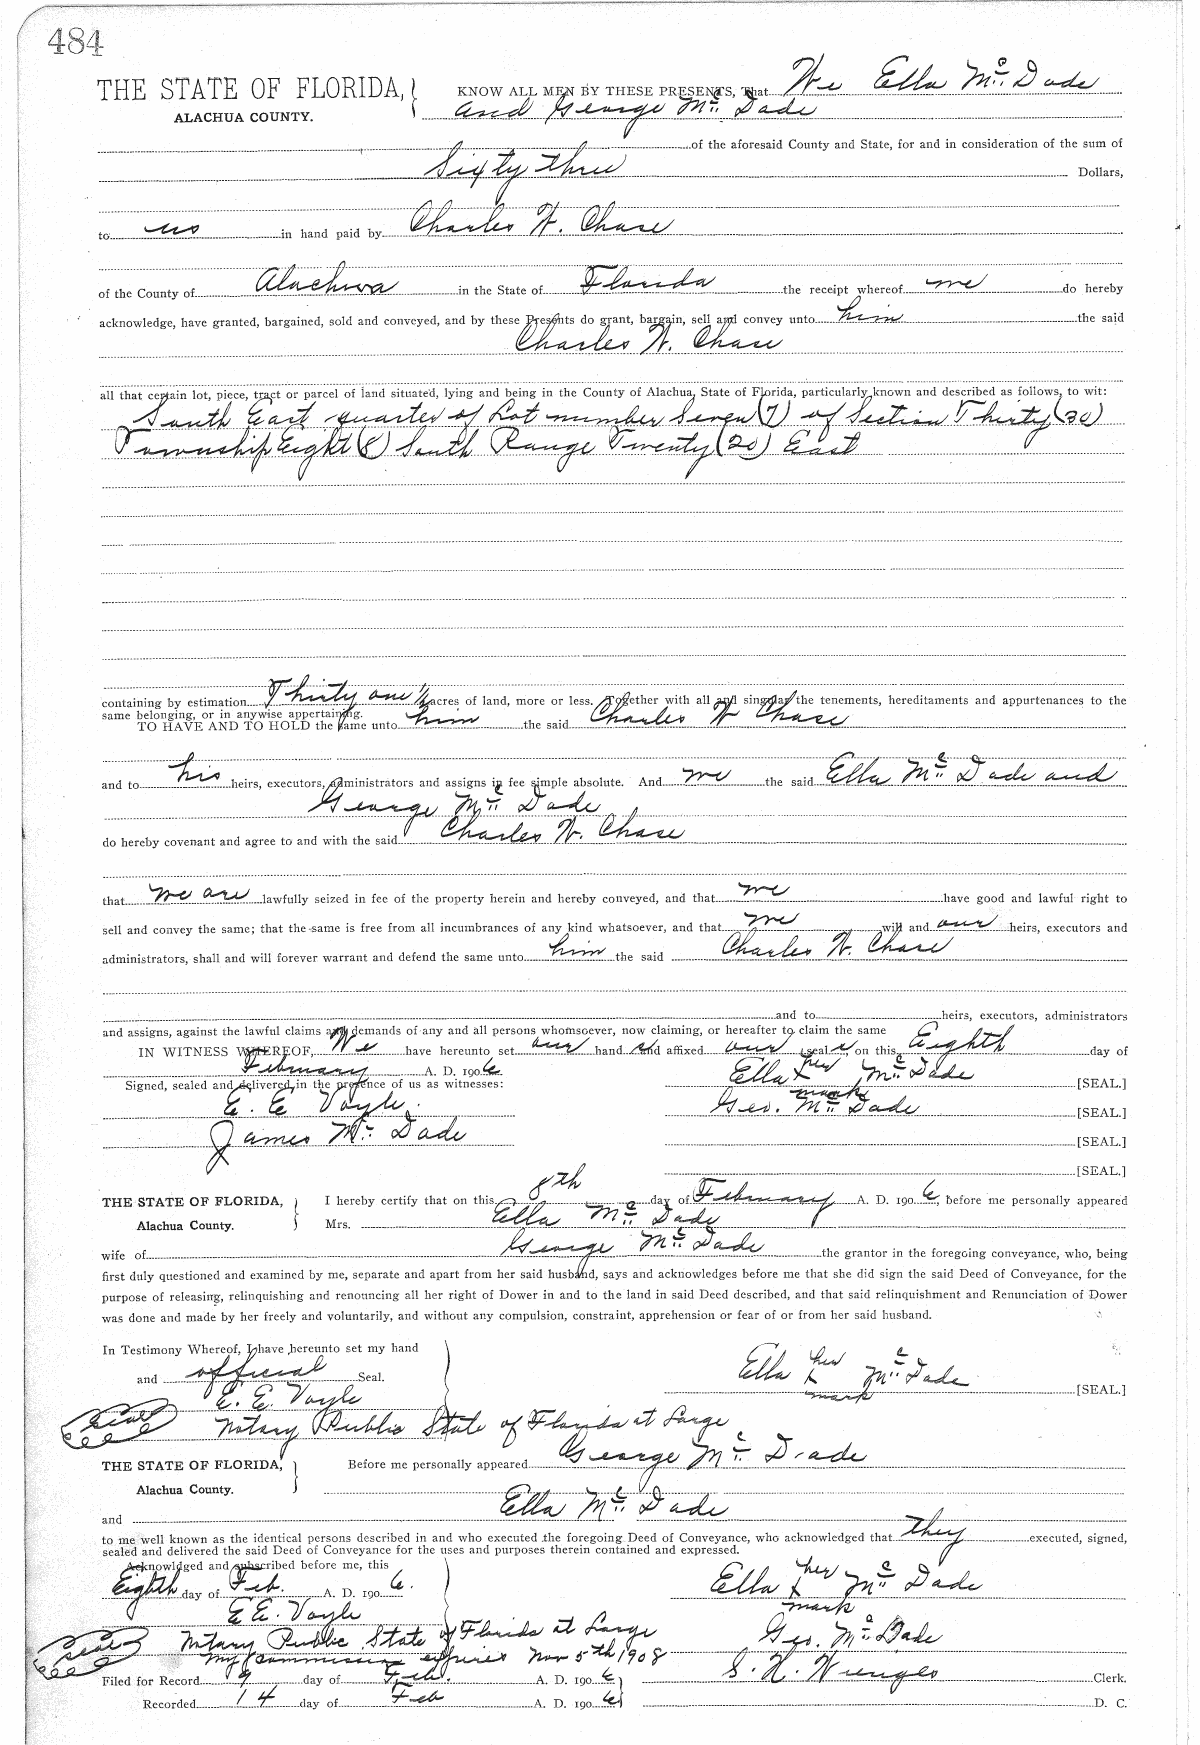 484
THE STATE OF FLORIDA, } KNOW ALL MEN BY THESE PRESENTS, That We Ella McDade
ALACHUA COUNTY. and George McDade
of the aforesaid County and State, for and in consideration of the sum of
Sixty three Dollars,
to us in hand paid by Charles W. Chase
of the County of Alachua in the State of Florida the receipt whereof we do hereby
acknowledge, have granted, bargained, sold and conveyed, and by these Presents do grant, bargain, sell and convey unto him the said
Charles W. Chase
all that certain lot, piece, tract or parcel of land situated, lying and being in the County of Alachua, State of Florida, particularly known and described as follows, to wit:
South East quarter of Lot number Seven (7) of Section Thirty (30)
Township Eight (8) South Range Twenty (20) East
containing by estimation Thirty one ½ acres of land, more or less. Together with all and singular the tenements, hereditaments and appurtenances to the
same belonging, or in anywise appertaining.
TO HAVE AND TO HOLD the same unto him the said Charles W Chase
and to his heirs, executors, administrators and assigns in fee simple absolute. And we the said Ella McDade and
George McDade
do hereby covenant and agree to and with the said Charles W. Chase
that we are lawfully seized in fee of the property herein and hereby conveyed, and that we have good and lawful right to
sell and convey the same; that the same is free from all incumbrances of any kind whatsoever, and that we will and our heirs, executors and
administrators, shall and will forever warrant and defend the same unto him the said Charles W. Chase
and to heirs, executors, administrators
and assigns, against the lawful claims and demands of any and all persons whomsoever, now claiming, or hereafter to claim the same
IN WITNESS WHEREOF, We have hereunto set our hand s and affixed our seal s, on this Eighth day of
February A. D. 1906
Signed, sealed and delivered in the presence of us as witnesses: Ella her x mark McDade [SEAL.]
E. E. Voyle. Geo. McDade [SEAL.]
James McDade [SEAL.]
[SEAL.]
THE STATE OF FLORIDA, } I hereby certify that on this 8th day of February A. D. 1906, before me personally appeared
Alachua County. Mrs. Ella McDade
wife of George McDade the grantor in the foregoing conveyance, who, being
first duly questioned and examined by me, separate and apart from her said husband, says and acknowledges before me that she did sign the said Deed of Conveyance, for the
purpose of releasing, relinquishing and renouncing all her right of Dower in and to the land in said Deed described, and that said relinquishment and Renunciation of Dower
was done and made by her freely and voluntarily, and without any compulsion, constraint, apprehension or fear of or from her said husband.
In Testimony Whereof, I have hereunto set my hand
and official Seal. Ella her x mark McDade [SEAL.]
E. E. Voyle
Seal Notary Public State of Florida at Large
THE STATE OF FLORIDA, } Before me personally appeared George McDade
Alachua County.
and Ella McDade
to me well known as the identical persons described in and who executed the foregoing Deed of Conveyance, who acknowledged that they executed, signed,
sealed and delivered the said Deed of Conveyance for the uses and purposes therein contained and expressed.
Acknowldged and subscribed before me, this
Eighth day of Feb. A. D. 1906. Ella her x mark McDade
E E. Voyle
Seal Notary Public State of Florida at Large Geo. McDade
My commission expires Nov 5th 1908
Filed for Record 9 day of Feb. A. D. 1906 S. H. Wienges Clerk.
Recorded 14 day of Feb A. D. 1906 D. C.